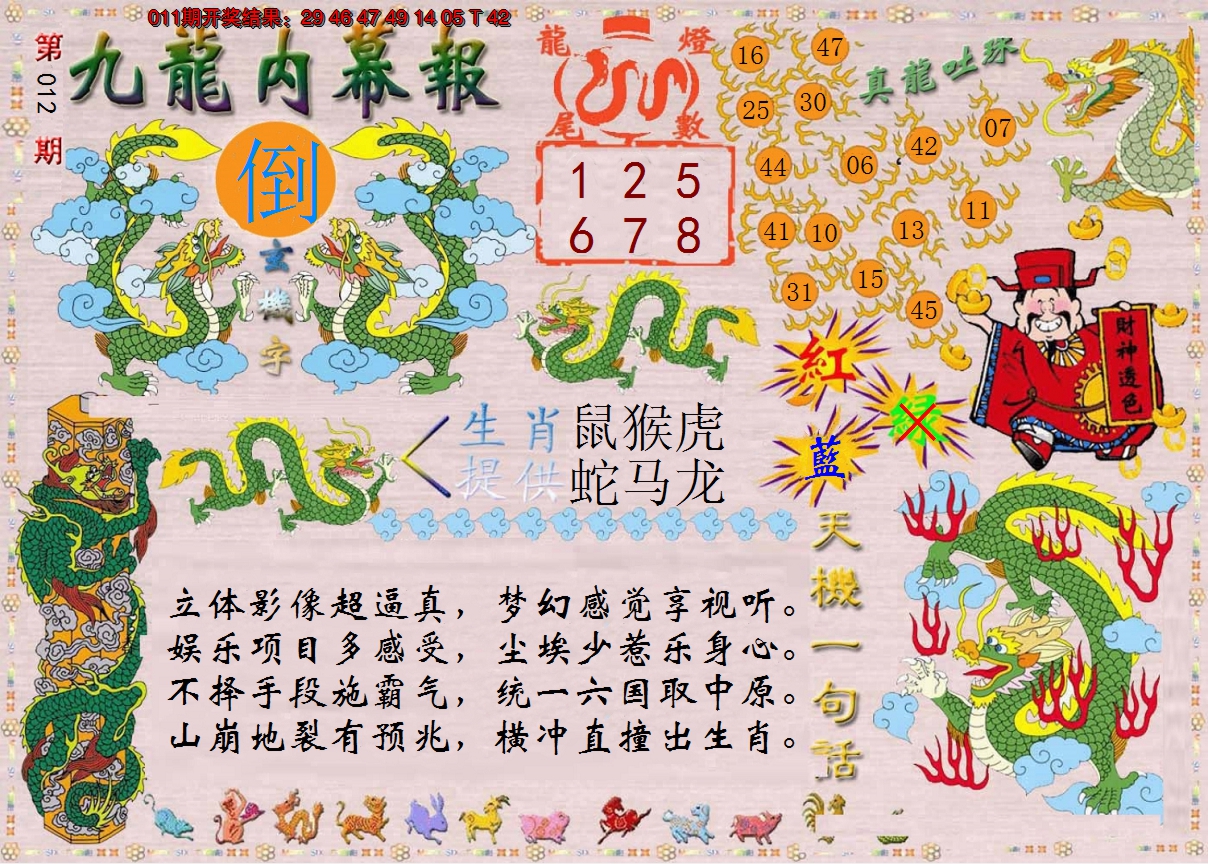 011期开奖结果：29 46 47 49 14 05 T 42
第012期
九龍内幕報
倒
玄機字
龍燈
尾數
1 2 5
6 7 8
真龍吐珠
16
47
25
30
07
42
44
06
11
41
10
13
15
31
45
紅
绿
藍
財神透色
生肖
提供
鼠猴虎
蛇马龙
天機一句話
立体影像超逼真，梦幻感觉享视听。
娱乐项目多感受，尘埃少惹乐身心。
不择手段施霸气，统一六国取中原。
山崩地裂有预兆，横冲直撞出生肖。